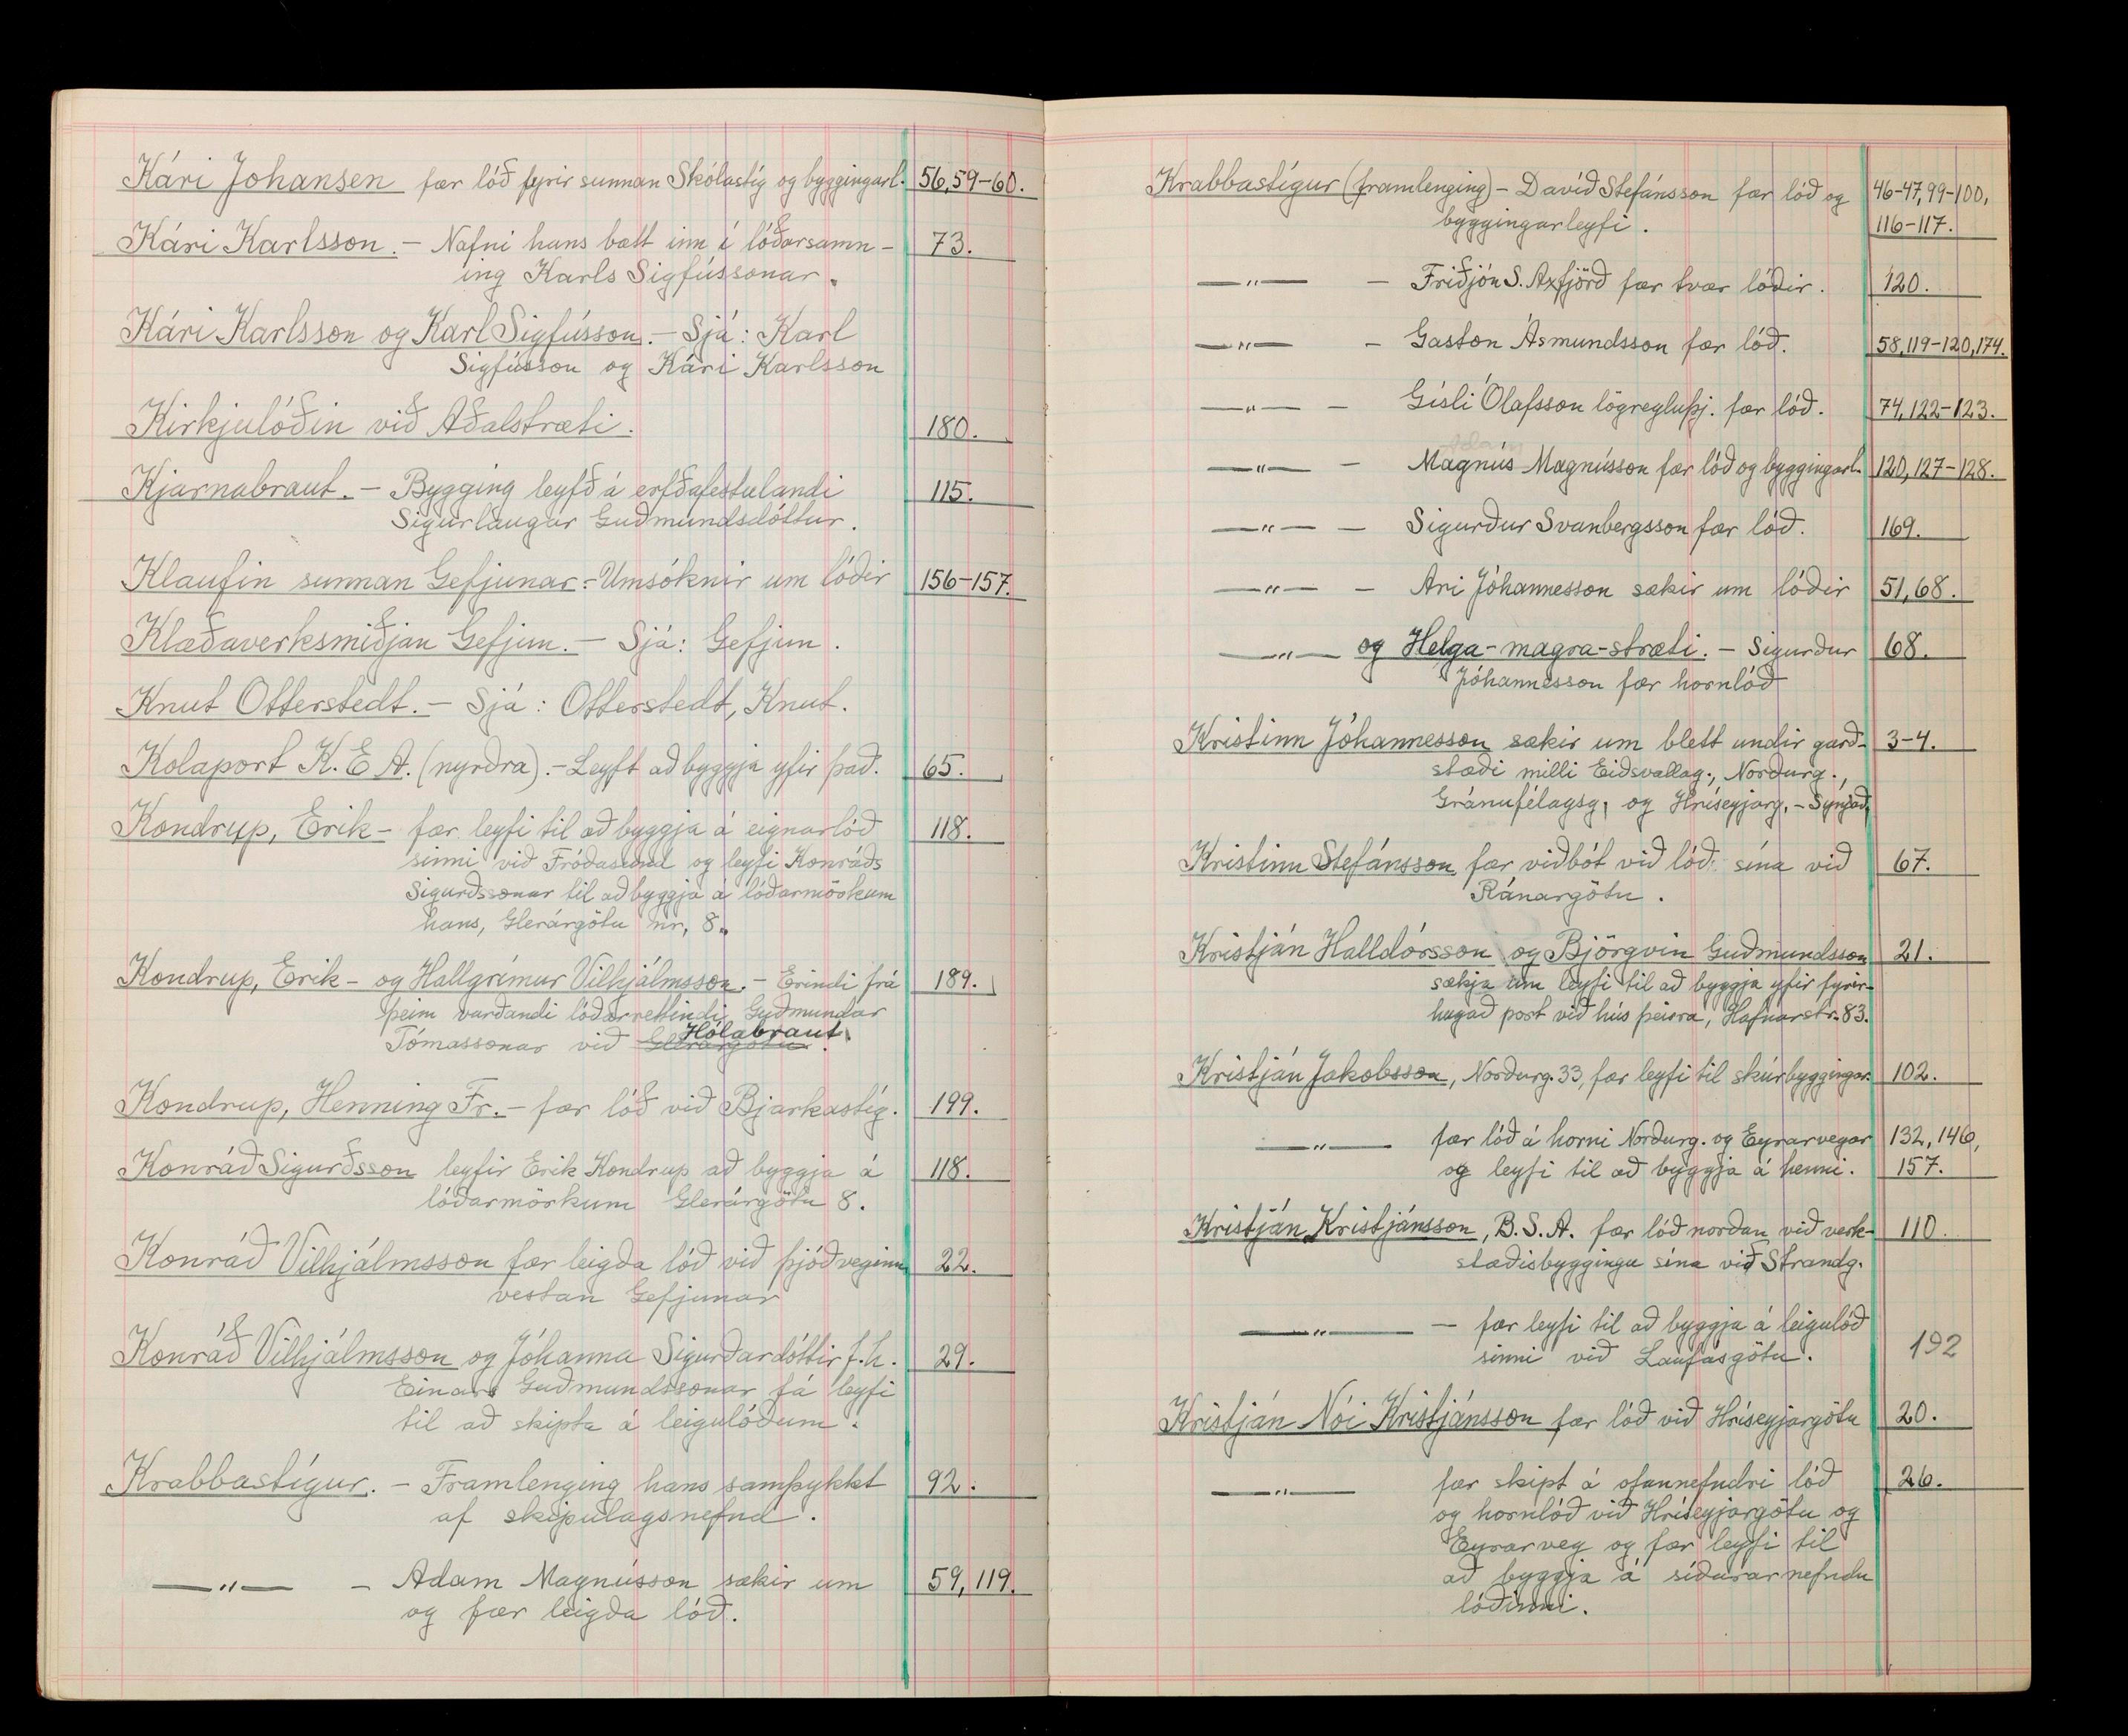 Kári Johansen fær lóð fyrir sunnan Skólastíg og byggingarl. 56, 59-60.
Kári Karlsson. - Nafni hans bætt inn í lóðarsamn- 73.
ing Karls Sigfússonar.
Kári Karlsson og Karl Sigfússon. - Sjá: Karl
Sigfússon og Kári Karlsson
Kirkjulóðin við Aðalstræti. 180.
Kjarnabraut. - Bygging leyfð á erfðafestulandi 115.
Sigurlaugar Guðmundsdóttur.
Klaufin sunnan Gefjunar. - Umsóknir um lóðir 156-157.
Klæðaverksmiðjan Gefjun. - Sjá: Gefjun.
Knut Otterstedt. - Sjá: Otterstedt, Knut.
Kolaport K.E.A. (nyrðra). - Leyft að byggja yfir það. 65.
Kondrup, Erik - fær leyfi til að byggja á eignarlóð 118.
sinni við Fróðasund og leyfi Konráðs
Sigurðssonar til að byggja á lóðarmörkum
hans, Glerárgötu nr. 8.
Kondrup, Erik - og Hallgrímur Vilhjálmsson. - Erindi frá 189.
þeim varðandi lóðarréttindi Guðmundar
Tómassonar við Glerárgötu Hólabraut.
Kondrup, Henning Fr. - fær lóð við Bjarkastíg. 199.
Konráð Sigurðsson leyfir Erik Kondrup að byggja á 118.
lóðarmörkum Glerárgötu 8.
Konráð Vilhjálmsson fær leigða lóð við þjóðveginn 22.
vestan Gefjunar
Konráð Vilhjálmsson og Jóhanna Sigurðardóttir f.h. 29.
Einars Guðmundssonar fá leyfi
til að skipta á leigulóðum.
Krabbastígur. - Framlenging hans samþykkt 92.
af skipulagsnefnd.
—"— - Adam Magnússon sækir um 59, 119.
og fær leigða lóð.
Krabbastígur (framlenging) - Davíð Stefánsson fær lóð og 46-47, 99-100,
byggingarleyfi. 116-117.
—"— - Friðjón S. Axfjörð fær tvær lóðir. 120.
—"— - Gaston Ásmundsson fær lóð. 58, 119-120, 174.
—"— - Gísli Ólafsson lögregluþj. fær lóð. 74, 122-123.
—"— - Magnús Magnússon fær lóð og byggingarl. 120, 127-128.
—"— - Sigurður Svanbergsson fær lóð. 169.
—"— - Ari Jóhannesson sækir um lóðir 51, 68.
—"— og Helga-magra-stræti. - Sigurður 68.
Jóhannesson fær hornlóð
Kristinn Jóhannesson sækir um blett undir garð- 3-4.
stæði milli Eiðsvallag., Norðurg.,
Gránufélagsg. og Hríseyjarg. - Synjað.
Kristinn Stefánsson fær viðbót við lóð sína við 67.
Ránargötu.
Kristján Halldórsson og Björgvin Guðmundsson 21.
sækja um leyfi til að byggja yfir fyrir-
hugað port við hús þeirra, Hafnarstr. 83.
Kristján Jakobsson, Norðurg. 33, fær leyfi til skúrbyggingar. 102.
—"— fær lóð á horni Norðurg. og Eyrarvegar 132, 146,
og leyfi til að byggja á henni. 157.
Kristján Kristjánsson, B.S.A. fær lóð norðan við verk- 110.
stæðisbyggingu sína við Strandg.
—"— - fær leyfi til að byggja á leigulóð
sinni við Laufásgötu. 192
Kristján Nói Kristjánsson fær lóð við Hríseyjargötu 20.
—"— fær skipt á ofannefndri lóð 26.
og hornlóð við Hríseyjargötu og
Eyrarveg og fær leyfi til
að byggja á síðurarnefndu
lóðinni.